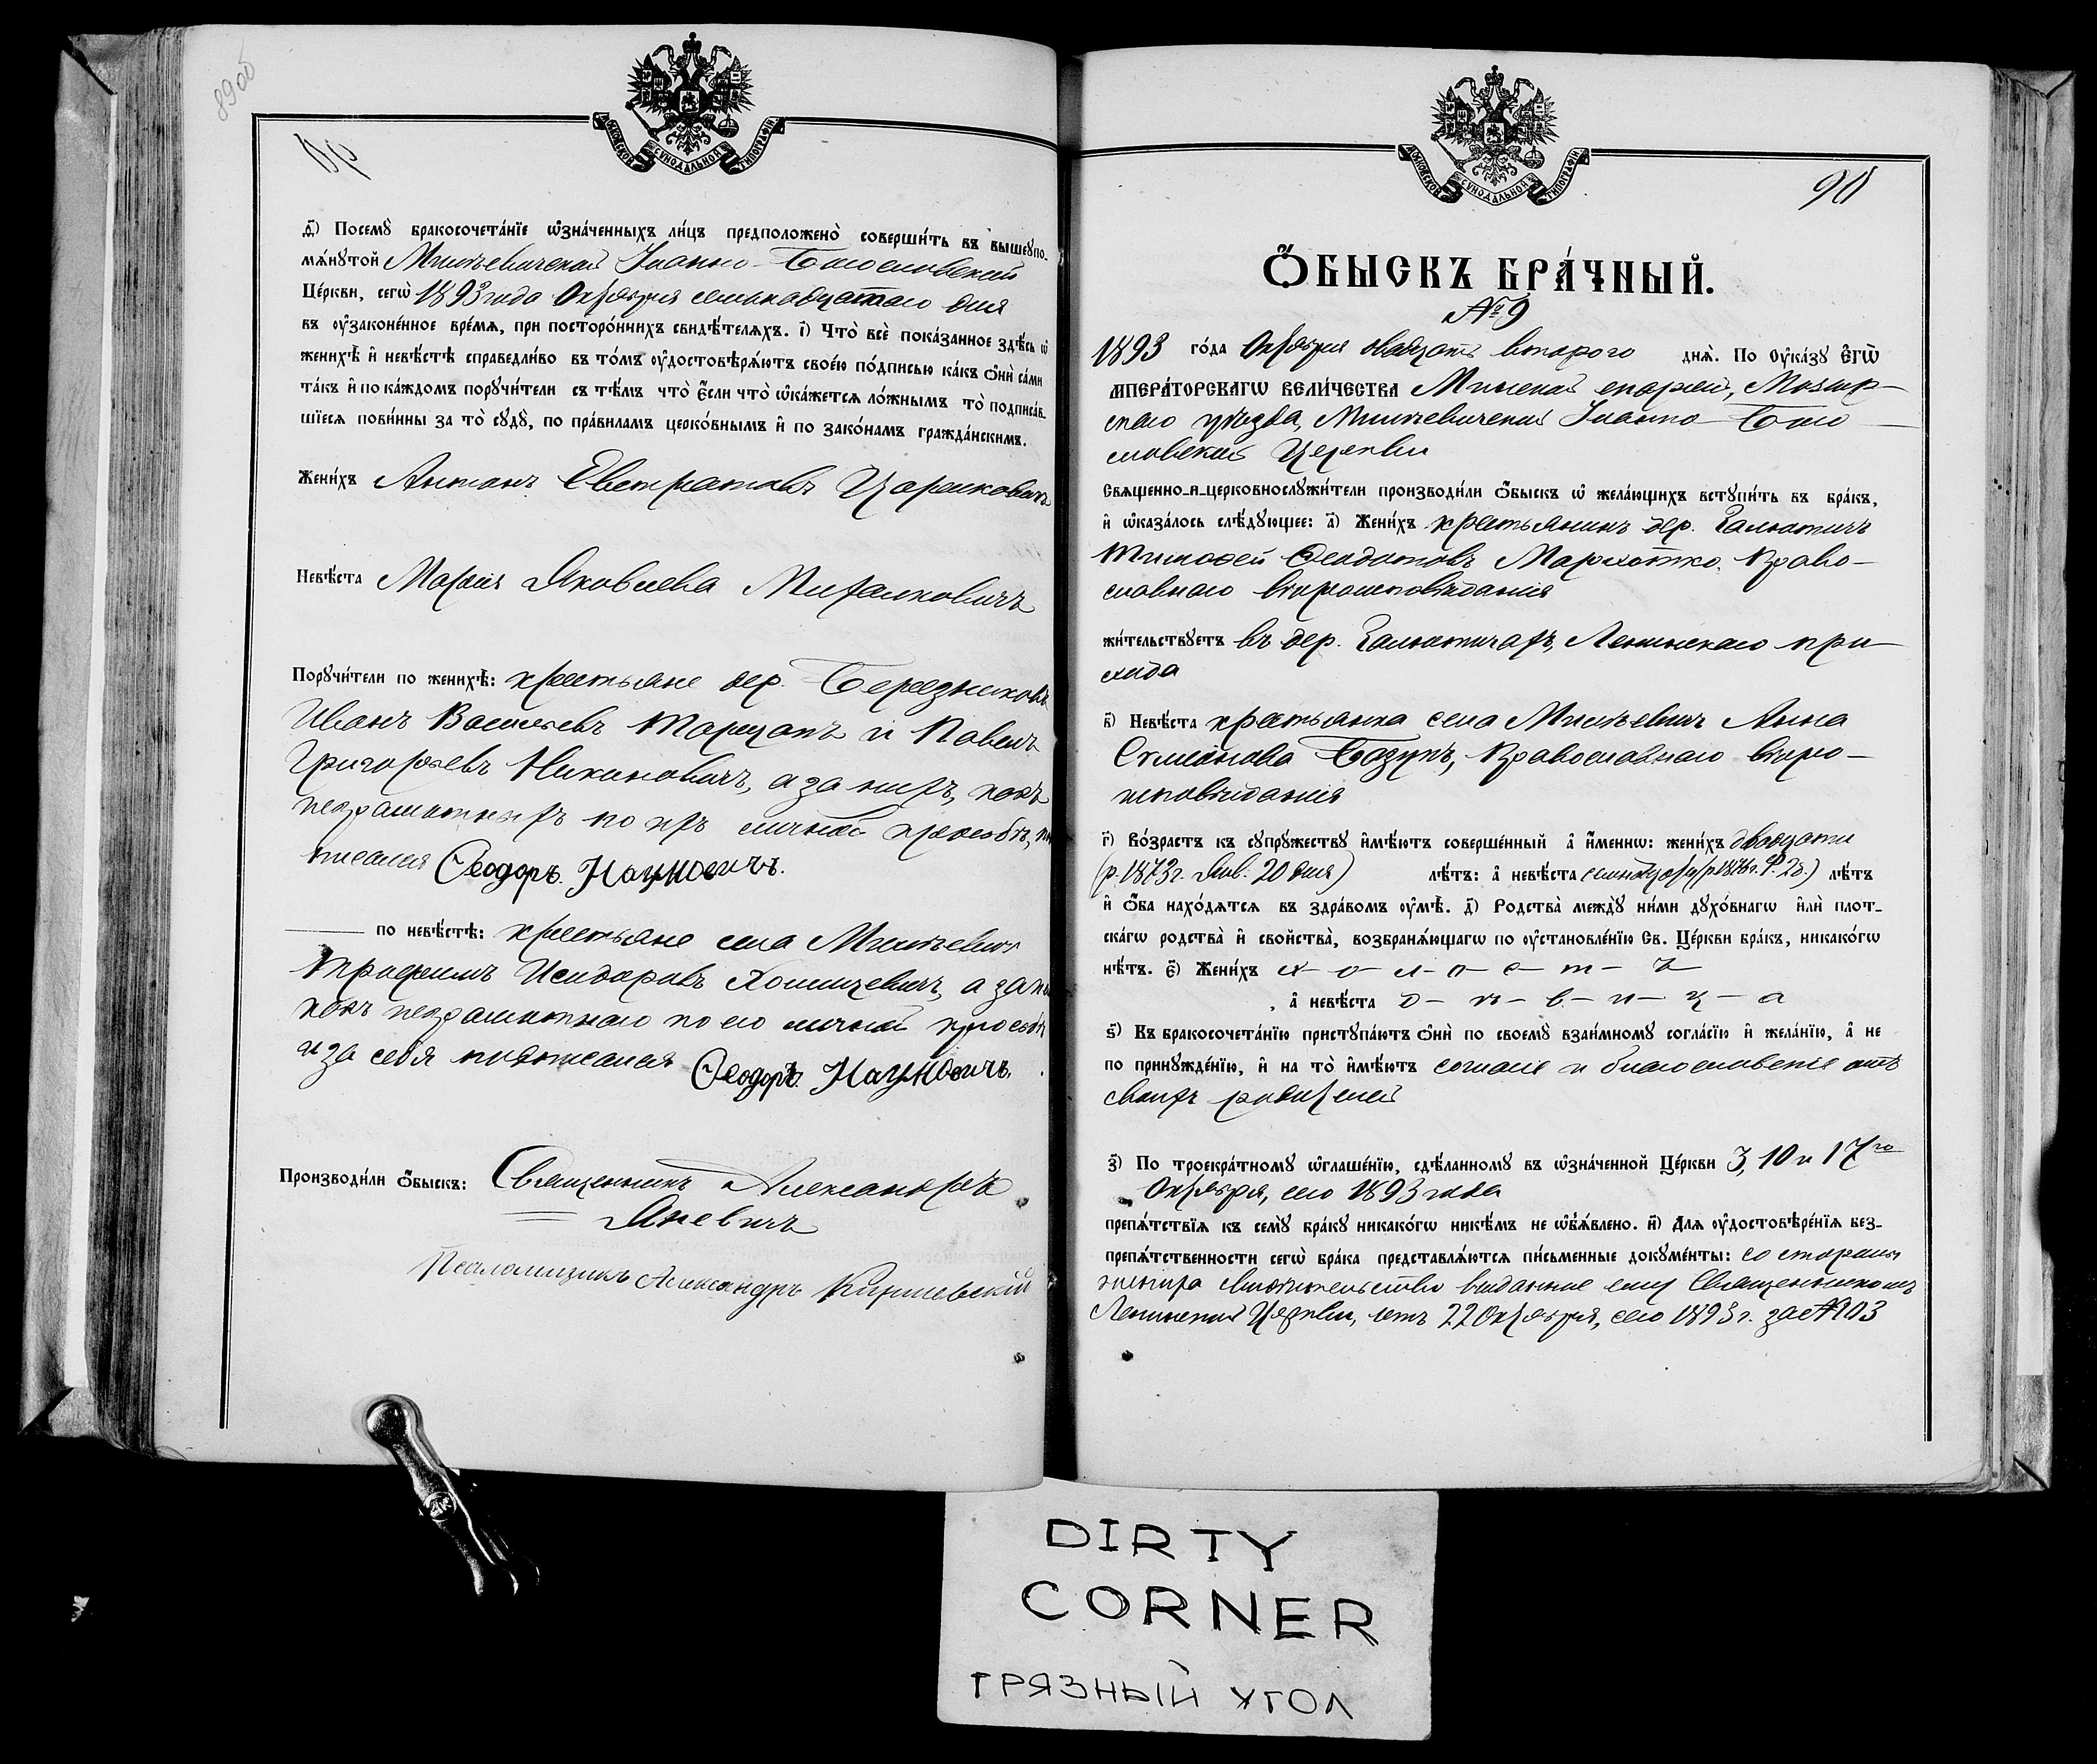 89об
МОСКОВСКОЙ СУНОДАЛЬНОЙ ТИПОГРАФIИ
ѳ҃) Посемꙋ̀ бракосочета́нїе ѡ҆зна́ченныхъ ли́цъ предположено̀ соверши́ть въ вышеꙋпо-
мѧ́нꙋтой Милевической Іоанно-Богословской
Це́ркви, сегѡ̀ 1893 года Октября семнадцатаго дня
въ ᲂу҆зако́ненное вре́мѧ, при посторо́ннихъ свидѣ́телѧхъ. і҃) Что̀ всѐ пока́занное здѣ́сь ѡ҆
женихѣ̀ и҆ невѣ́стѣ справедли́во въ то́мъ ᲂу҆достовѣрѧ́ютъ свое́ю по́дписью ка́къ ѻ҆нѝ са́ми
та́къ и҆ по ка́ждомъ порꙋчи́тели съ тѣ́мъ что̀ є҆́сли что̀ ѡ҆ка́жетсѧ ло́жнымъ то̀ подписа́в-
шїесѧ пови́нны за то̀ сꙋдꙋ̀, по пра́виламъ церко́внымъ и҆ по зако́намъ гражда́нскимъ.
Жени́хъ Антонъ Евстратовъ
Невѣ́ста Марія Яковлева
Порꙋчи́тели по женихѣ̀: крестьяне дер. Березняковъ
Иванъ Васильевъ и Павелъ
Григорьевъ Никоновичъ, а за нихъ, какъ
неграмотныхъ по ихъ личной просьбѣ,
писался Ѳеодоръ Наумовичъ.
по невѣ́стѣ: крестьяне села Милевичъ
Трофимъ Исидоровъ а за
какъ неграмотнаго по его личной просьбѣ
и за себя подписался Ѳеодоръ Наумовичъ.
Производи́ли ѻ҆́быскъ: Священникъ Александръ
Яневичъ
Псаломщикъ Александръ
МОСКОВСКОЙ СУНОДАЛЬНОЙ ТИПОГРАФIИ
90
Ѻ҆БЫСКЪ БРА́ЧНЫЙ.
№ 9
1893 го́да Октября двадцать втораго днѧ̀. По ᲂу҆ка́зꙋ Е҆ГѠ̀
ИМПЕРА́ТОРСКАГѠ ВЕЛИ́ЧЕСТВА Минской епархіи, Мозыр-
скаго уѣзда, Милевической Іоанно-Бого
словской Церкви
Свѧщенно-и-церковнослꙋжи́тели производи́ли ѻ҆́быскъ ѡ҆ жела́ющихъ встꙋпи́ть въ бра́къ,
и҆ ѡ҆каза́лось слѣ́дꙋющее: а҃) Жени́хъ крестьянинъ дер.
Тимоѳей Ѳеодотовъ Право-
славнаго вѣроисповѣданія
жи́тельствꙋетъ въ дер. Ленинскаго при-
хода
в҃) Невѣ́ста крестьянка села Милевичъ Анна
Семіонова Базунъ, Православнаго вѣро-
исповѣданія
г҃) Во́зрастъ къ сꙋпрꙋ́жествꙋ и҆мѣ́ютъ соверше́нный а҆ и҆́меннѡ: жени́хъ двадцати
(р. 1873 г. Янв. 20 дня) лѣ́тъ: а҆ невѣ́ста лѣ́тъ
и҆ ѻ҆́ба нахо́дѧтсѧ въ здра́вомъ ᲂу҆мѣ̀. д҃) Родства̀ междꙋ̀ ни́ми дꙋхо́внагѡ и҆лѝ плот-
ска́гѡ родства̀ и҆ свойства̀, возбранѧ́ющагѡ по ᲂу҆становле́нїю Св. Це́ркви бра́къ, никако́гѡ
нѣ́тъ. є҃) Жени́хъ х-о-л-о-с-т-ъ
, а҆ невѣ́ста д-ѣ-в-и-ц-а
ѕ҃) Къ бракосочета́нїю пристꙋпа́ютъ ѻ҆нѝ по своемꙋ̀ взаи́мномꙋ согла́сїю и҆ жела́нїю, а҆ не
по принꙋжде́нїю, и҆ на то̀ и҆мѣ́ютъ согласіе и благословеніе отъ
своихъ родителей
з҃) По троекра́тномꙋ ѡ҆глаше́нїю, сдѣ́ланномꙋ въ ѡ҆зна́ченной Це́ркви 3, 10 и 17го
Октября, сего 1893 года
препѧ́тствїѧ къ семꙋ̀ бра́кꙋ никако́гѡ никѣ́мъ не ѡ҆б̾ѧ́влено. и҃) Длѧ ᲂу҆достовѣре́нїѧ без-
препѧ́тственности сегѡ̀ бра́ка представлѧ́ютсѧ пи́сьменные докꙋме́нты: со стороны
жениха свидѣтельство выданное ему Священникомъ
Ленинской Церкви, отъ 22 Октября, сего 1893 г. за № 103
DIRTY
CORNER
ГРЯЗНЫЙ УГОЛ